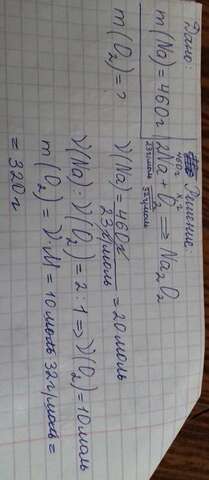 Дано:
m(Na)=460г
m(O₂)=?
Решение:
460г x г
2Na + O₂ ⇒ Na₂O₂
23г/моль 32г/моль
ν(Na)= 460г / 23г/моль = 20моль
ν(Na):ν(O₂)=2:1 ⇒ ν(O₂)=10моль
m(O₂)=ν·M=10моль·32г/моль=
=320г